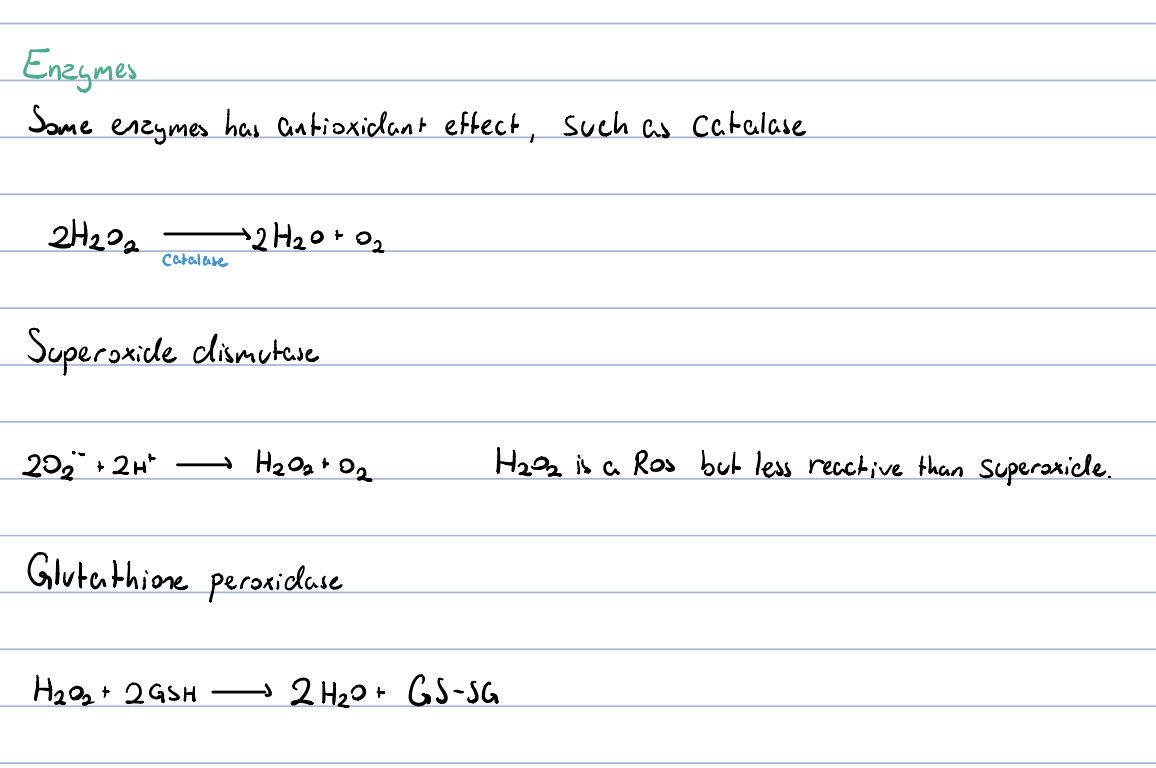 Enzymes
Some enzymes has antioxidant effect, such as catalase
2H₂O₂ ⟶ 2H₂O + O₂
catalase
Superoxide dismutase
2O₂˙⁻ + 2H⁺ ⟶ H₂O₂ + O₂ H₂O₂ is a Ros but less reactive than superoxide.
Glutathione peroxidase
H₂O₂ + 2GSH ⟶ 2H₂O + GS-SG